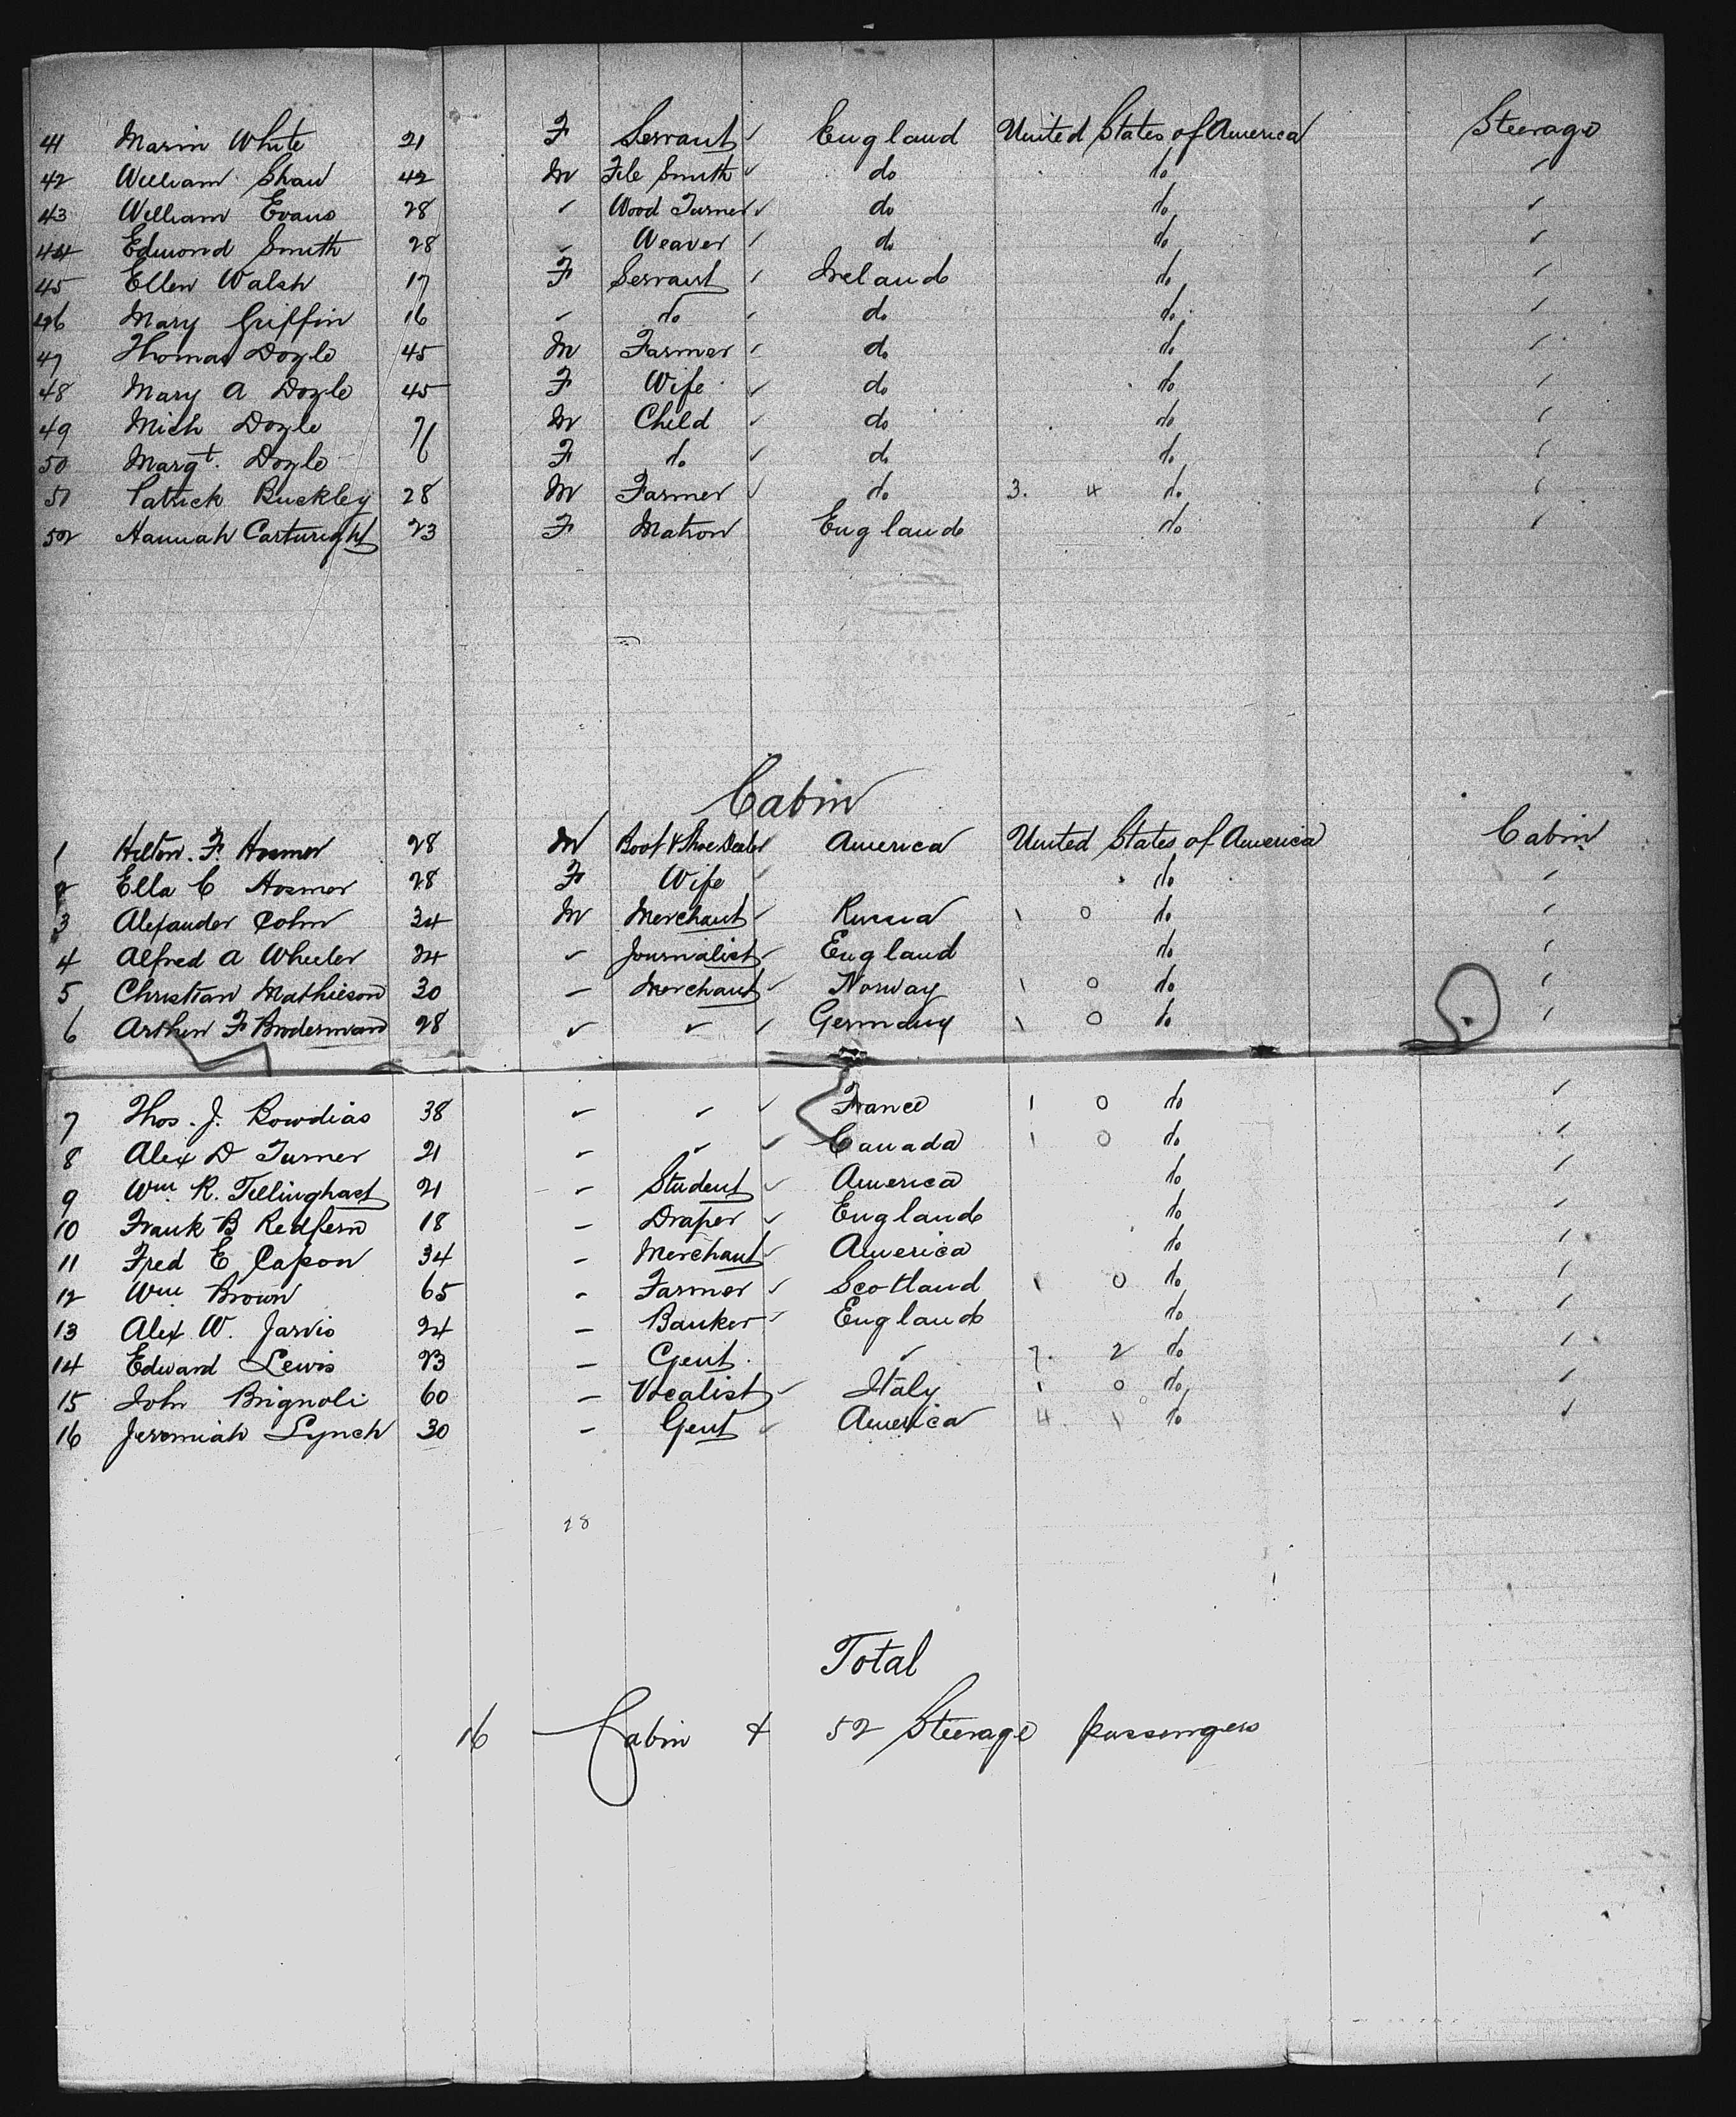 41 Marin White 21 F Servant ✓ England United States of America Steerage
42 William Shaw 42 M File Smith ✓ do do ✓
43 William Evans 28 ✓ Wood Turner ✓ do do ✓
44 Edmond Smith 28 ✓ Weaver ✓ do do ✓
45 Ellen Walsh 17 F Servant ✓ Ireland do ✓
46 Mary Griffin 16 ✓ do ✓ do do ✓
47 Thomas Doyle 45 M Farmer ✓ do do ✓
48 Mary A Doyle 45 F Wife ✓ do do ✓
49 Mich Doyle 7 M Child ✓ do do ✓
50 Margt. Doyle 6 F do ✓ do do ✓
51 Patrick Buckley 28 M Farmer ✓ do 3. 4 do ✓
52 Hannah Cartwright 23 F Matron England do ✓
Cabin
1 Hilton. F. Hosmer 28 M Boot & Shoe Dealer America United States of America Cabin
2 Ella C Hosmer 28 F Wife ✓ do ✓
3 Alexander Cohn 34 M Merchant ✓ Russia 1 0 do ✓
4 Alfred A Wheeler 24 ✓ Journalist ✓ England do ✓
5 Christian Mathieson 30 – Merchant ✓ Norway 1 0 do ✓
6 F 28 ✓ ✓ ✓ Germany 1 0 do ✓
7 Thos. J. 38 ✓ ✓ ✓ France 1 0 do ✓
8 Alex D Turner 21 ✓ ✓ ✓ Canada 1 0 do ✓
9 Wm. R. Tillinghast 21 – Student ✓ America do ✓
10 Frank B Redfern 18 – Draper ✓ England do ✓
11 Fred E Capon 34 – Merchant ✓ America do ✓
12 Wm Brown 65 – Farmer ✓ Scotland 1 0 do ✓
13 Alex W. Jarvis 24 – Banker ✓ England do ✓
14 Edward Lewis 23 – Gent. ✓ 7. 2 do ✓
15 John Brignoli 60 – Vocalist ✓ Italy 1 0 do ✓
16 Jeremiah Lynch 30 – Gent ✓ America 4. 1 do ✓
28
Total
16 Cabin & 52 Steerage passengers